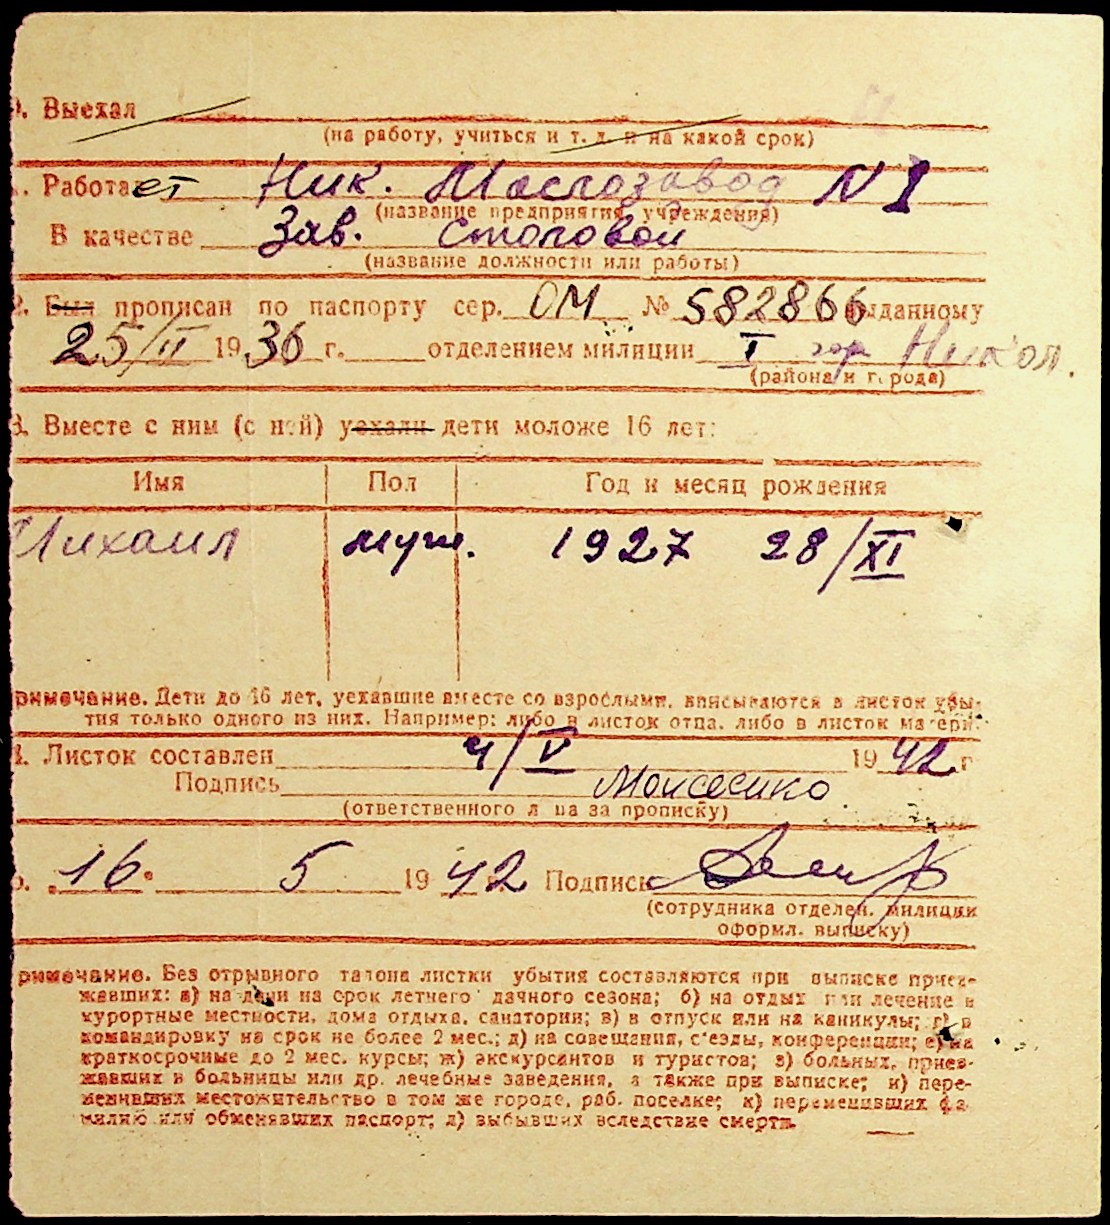 . Выехал
(на работу, учиться и т. д. и на какой срок)
. Работает Ник. Маслозавод N 1
(название предприятия, учреждения)
В качестве Зав. Столовой
(название должности или работы)
2. Был прописан по паспорту сер. ОМ № 582866 выданному
25/II 1936 г. отделением милиции I гор Никол.
(района и города)
3. Вместе с ним (с ней) уехали дети моложе 16 лет:
Имя Пол Год и месяц рождения
Михаил муж. 1927 28/XI
римечание. Дети до 16 лет, уехавшие вместе со взрослыми, вписываются в листок убы-
тия только одного из них. Например: либо в листок отца, либо в листок матери.
. Листок составлен 4/V 1942 г
Подпись Моисеенко
(ответственного лица за прописку)
. 16. 5 1942 Подпись
(сотрудника отделен. милиции
оформл. выписку)
римечание. Без отрывного талона листки убытия составляются при выписке приез-
жавших: а) на дачи на срок летнего дачного сезона; б) на отдых или лечение в
курортные местности, дома отдыха, санатории; в) в отпуск или на каникулы; г) в
командировку на срок не более 2 мес.; д) на совещания, с'езды, конференции; е) на
краткосрочные до 2 мес. курсы; ж) экскурсантов и туристов; з) больных, приез-
жавших в больницы или др. лечебные заведения, а также при выписке; и) пере-
менивших местожительство в том же городе, раб. поселке; к) переменивших фа-
милию или обменявших паспорт; л) выбывших вследствие смерти.